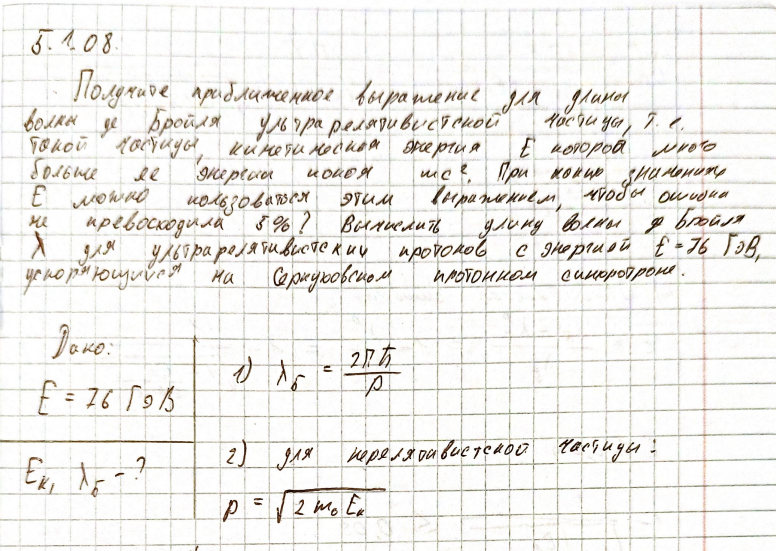 5.1.08.
Получите приближенное выражение для длины
волны де Бройля ультрарелятивистской частицы, т.е.
такой частицы, кинетическая энергия E которой много
больше ее энергии покоя mc². При каких значениях
E можно пользоваться этим выражением, чтобы ошибка
не превосходила 5%? Вычислить длину волны де Бройля
λ для ультрарелятивистских протонов с энергией E = 76 ГэВ,
ускоряющихся на Серпуховском протонном синхротроне.
Дано:
E = 76 ГэВ
Eк, λБ - ?
1) λБ = 2πħ / p
2) для нерелятивистской частицы:
p = √2 m₀ Eк